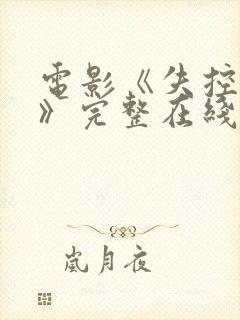 電影《失控
》完整在綫
嵐月夜